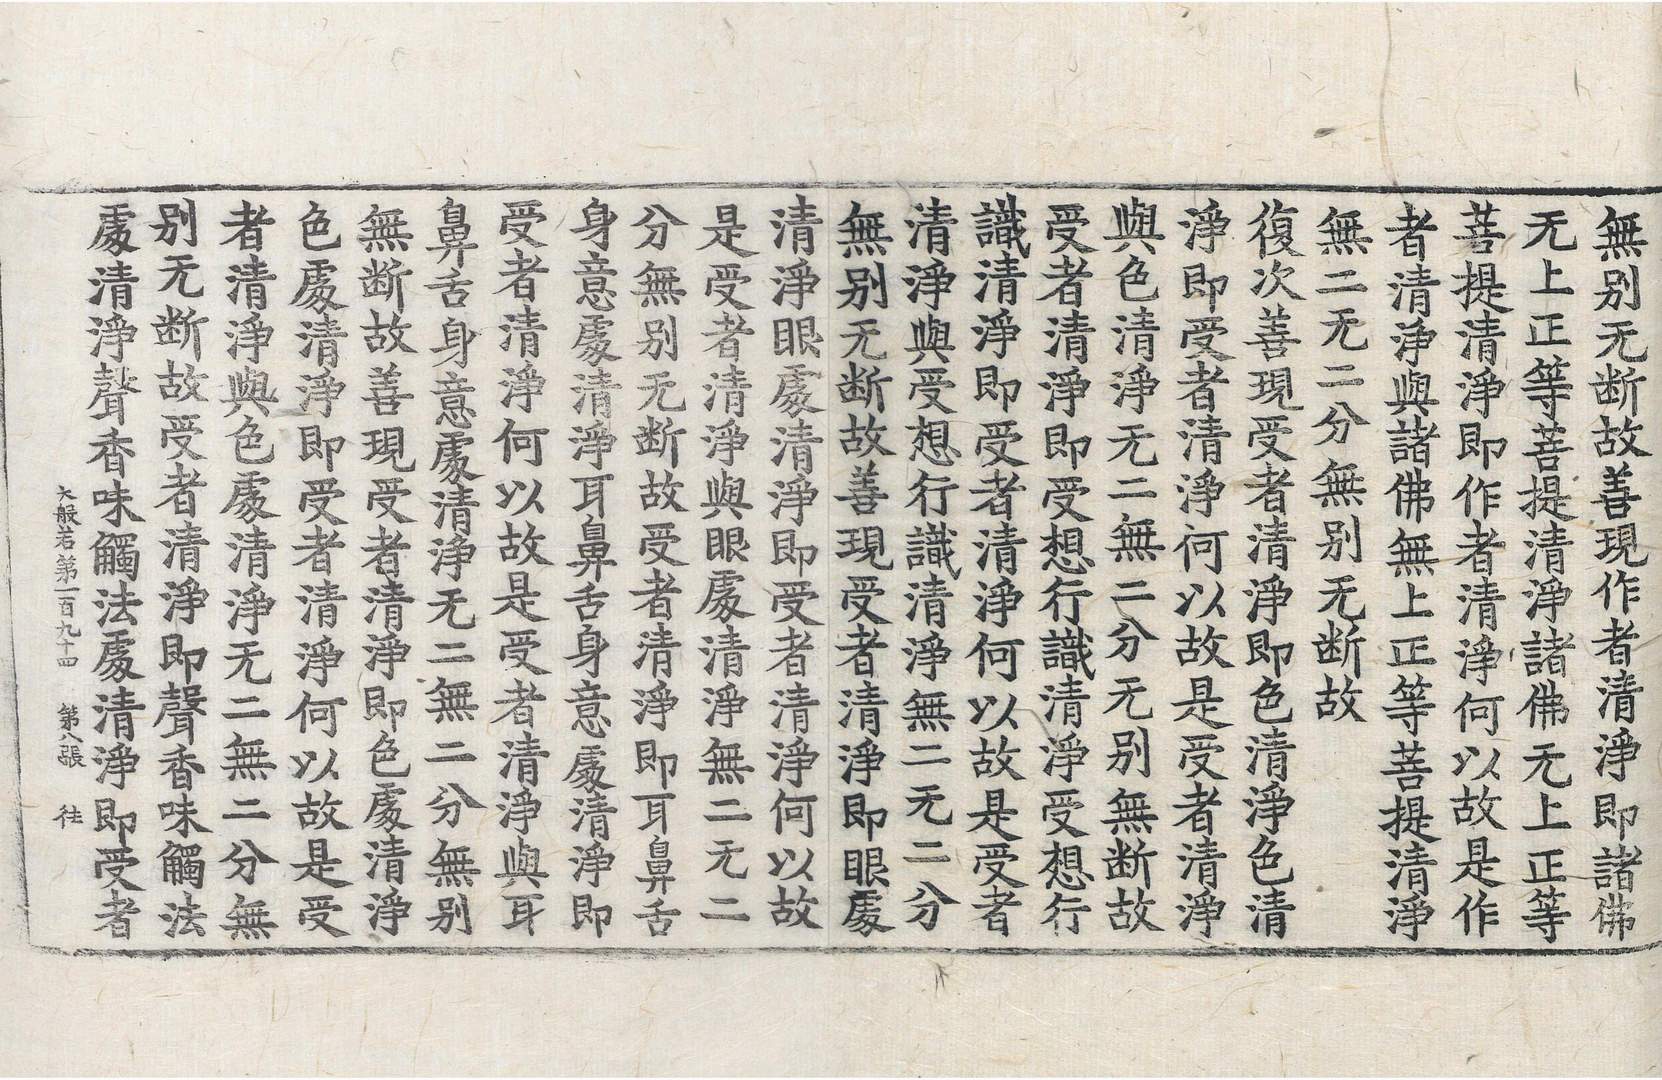 無别无断故善現作者清淨即諸佛
无上正等菩提清淨諸佛无上正等
菩提清淨即作者清淨何以故是作
者清淨與諸佛無上正等菩提清淨
無二无二分無别无断故
復次善現受者清淨即色清淨色清
淨即受者清淨何以故是受者清淨
與色清淨无二無二分无别無断故
受者清淨即受想行識清淨受想行
識清淨即受者清淨何以故是受者
清淨與受想行識清淨無二无二分
無别无断故善現受者清淨即眼處
清淨眼處清淨即受者清淨何以故
是受者清淨與眼處清淨無二无二
分無别无断故受者清淨即耳鼻舌
身意處清淨耳鼻舌身意處清淨即
受者清淨何以故是受者清淨與耳
鼻舌身意處清淨无二無二分無别
無断故善現受者清淨即色處清淨
色處清淨即受者清淨何以故是受
者清淨與色處清淨无二無二分無
别无断故受者清淨即聲香味觸法
處清淨聲香味觸法處清淨即受者
大般若第一百九十四 第八張 往